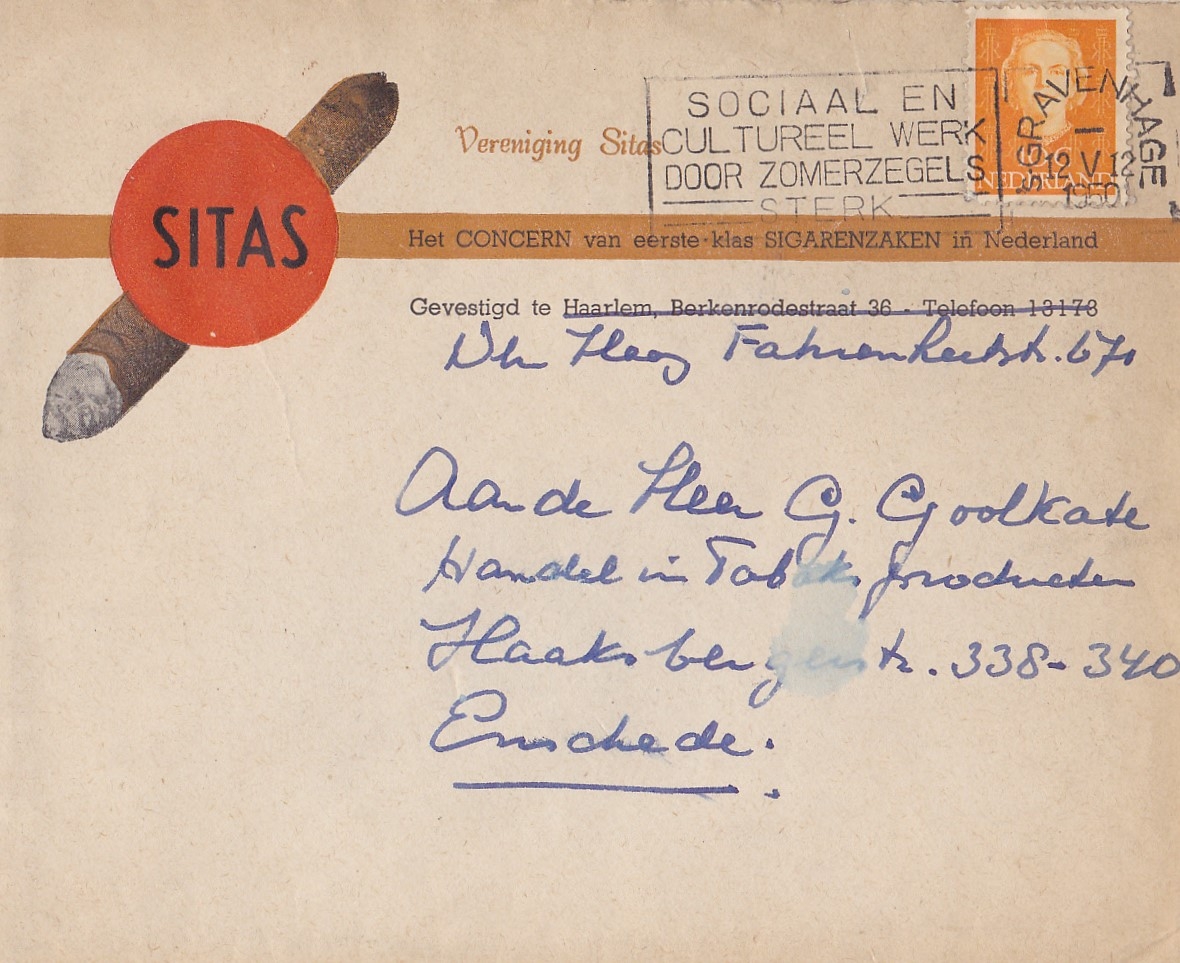 SITAS
Vereniging Sitas
SOCIAAL EN
CULTUREEL WERK
DOOR ZOMERZEGELS
STERK
'S-GRAVENHAGE
12 V 12
1950
NEDERLAND
Het CONCERN van eerste-klas SIGARENZAKEN in Nederland
Gevestigd te Haarlem, Berkenrodestraat 36 - Telefoon 13173
Den Haag Fahrenheitstr.
Aan de Heer G. Goolkate
Handel in Tabaksproducten
Haaksbergerstr. 338-340
Enschede.